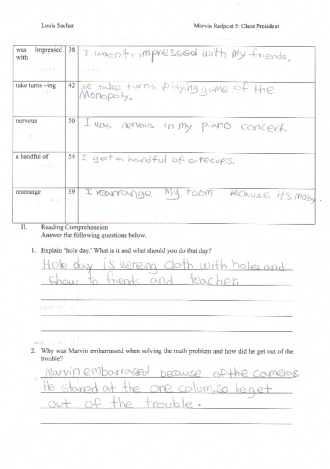 Louis Sachar Marvin Redpost 5: Class President
was impressed with 38 I wasn't impressed with my friends.
take turns –ing 42 we take turns playing game of the Monopoly.
nervous 50 I was nervous in my piano concert.
a handful of 54 I got a handful of
rearrange 59 I rearrange my room because it's messy.
II. Reading Comprehension
Answer the following questions below.
1. Explain 'hole day.' What is it and what should you do that day?
Hole day is wereing cloth with holes and
show to friends and teacher.
2. Why was Marvin embarrassed when solving the math problem and how did he get out of the
trouble?
Marvin embarrased because of the cameras.
He stared at the one colum, so he get
out of the trouble.